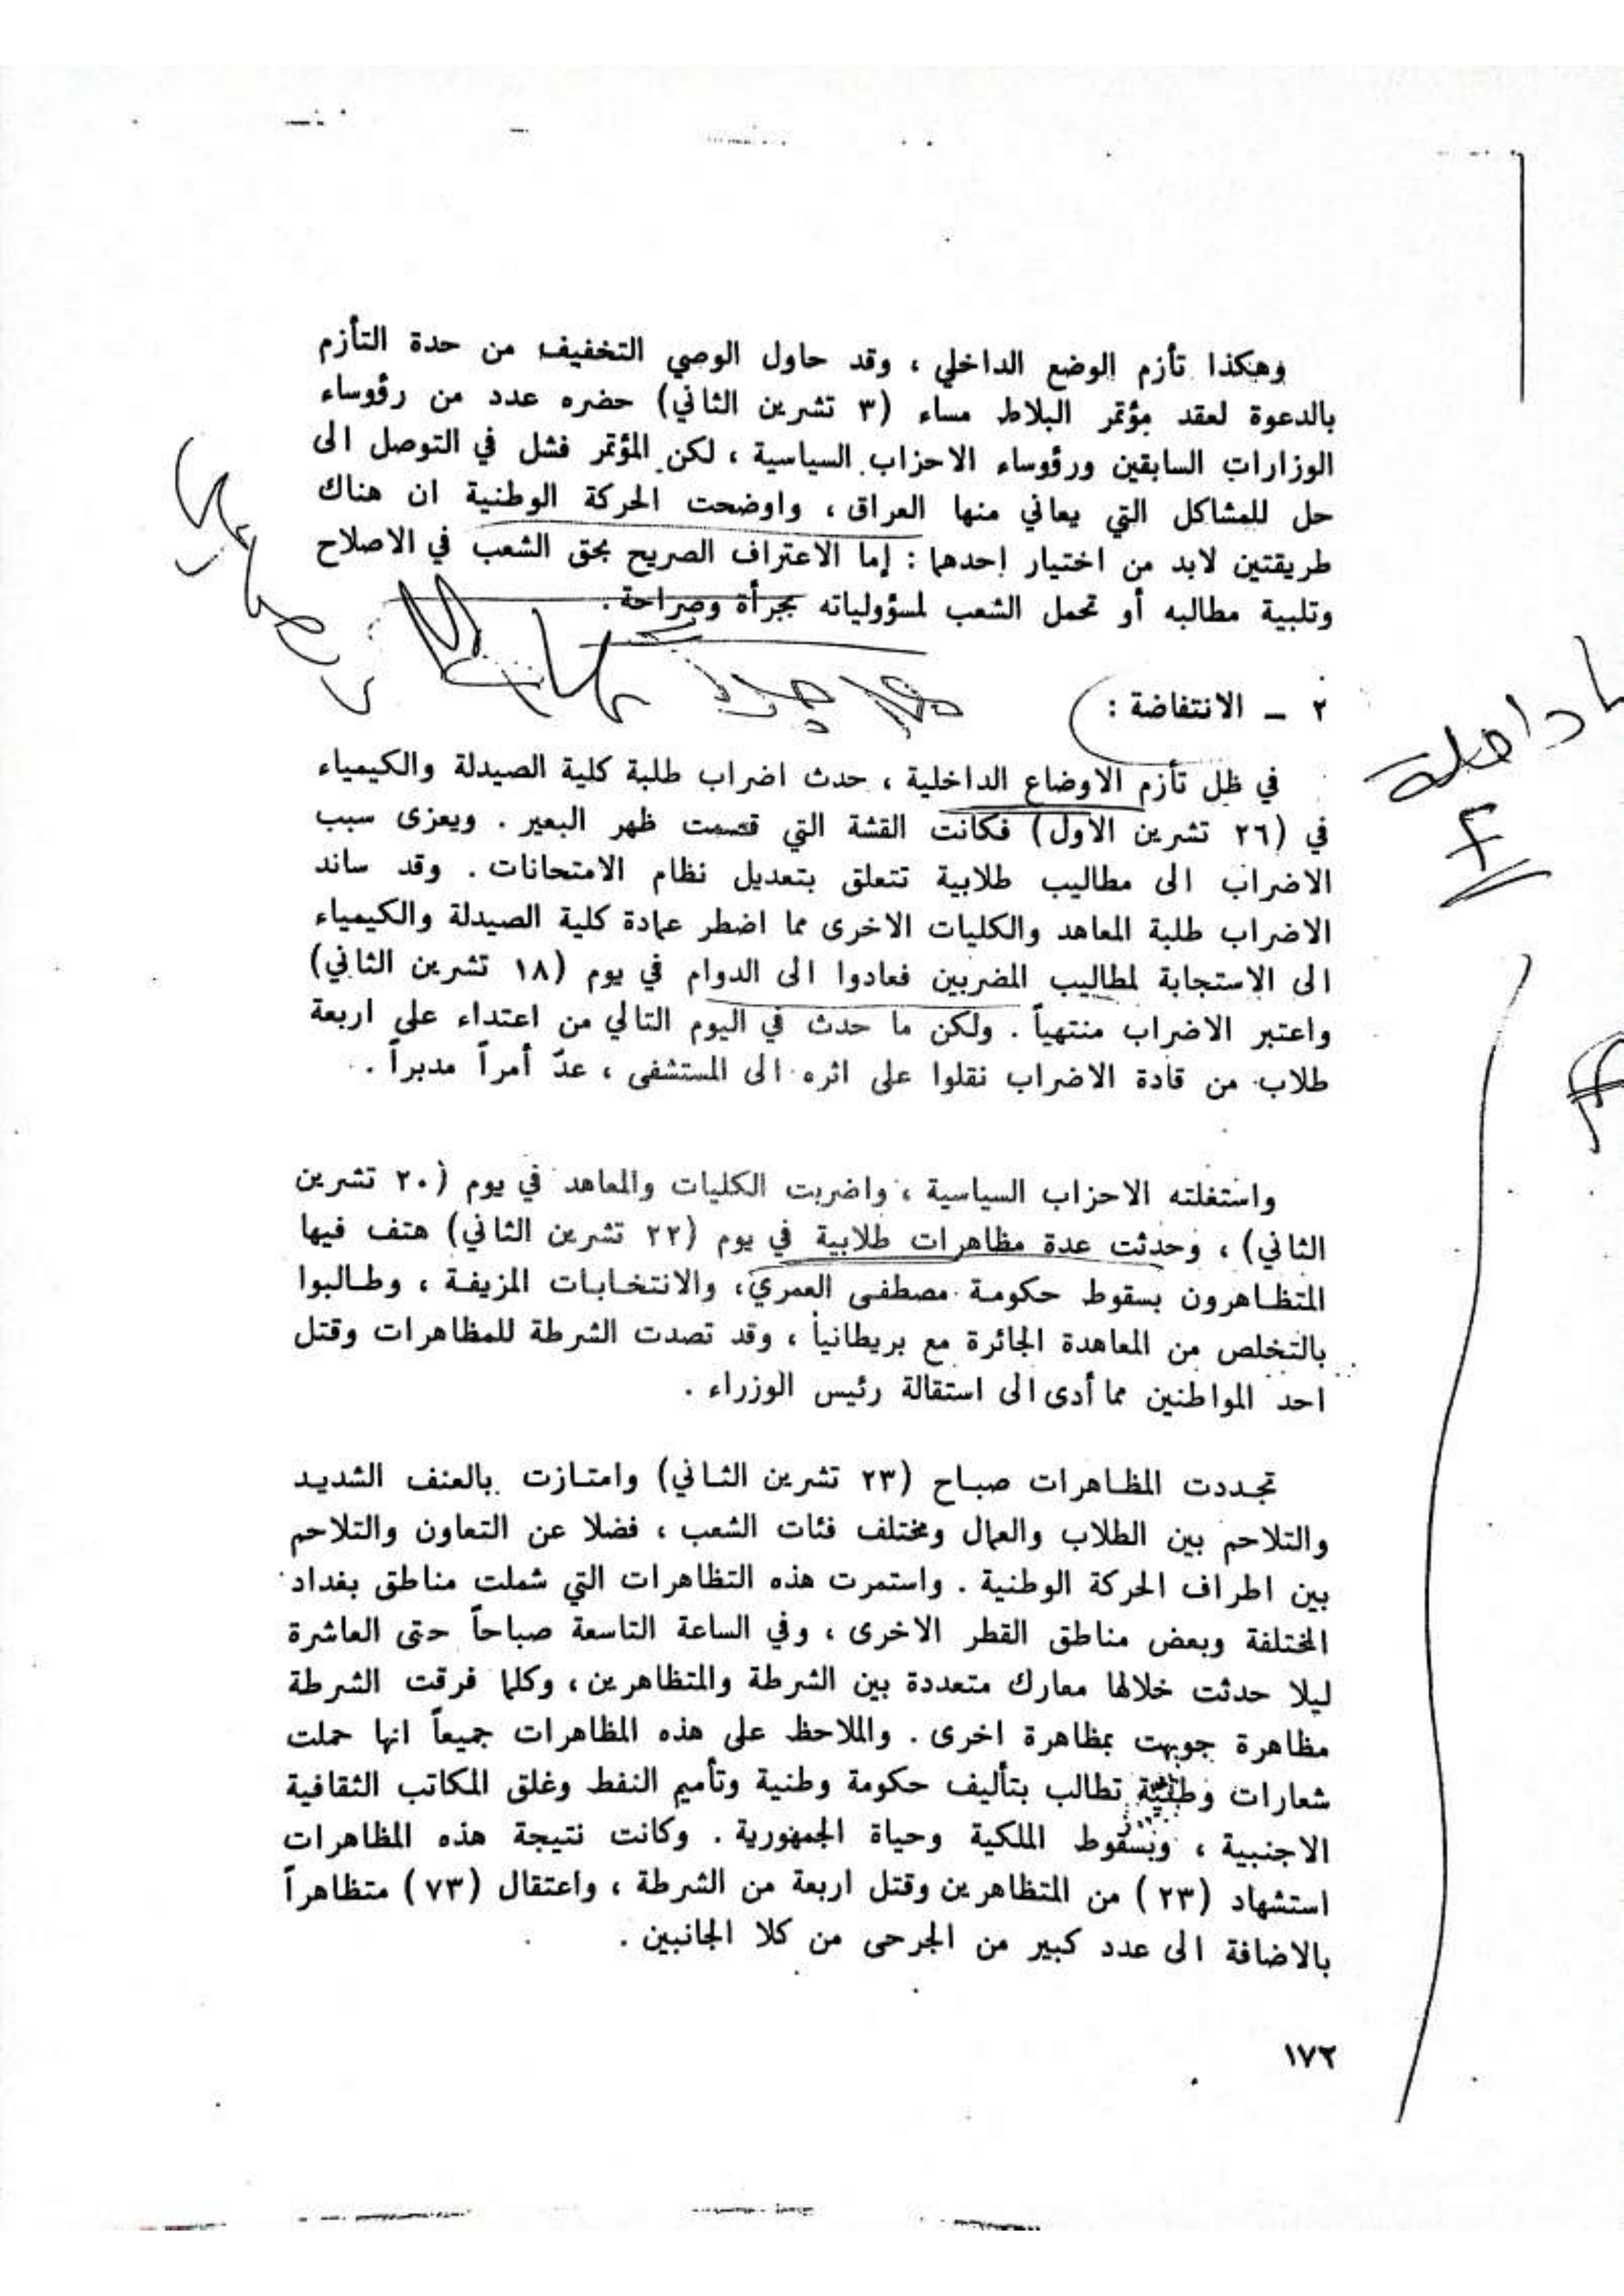 وهكذا تأزم الوضع الداخلي ، وقد حاول الوصي التخفيف من حدة التأزم
بالدعوة لعقد مؤتمر البلاط مساء (٣ تشرين الثاني) حضره عدد من رؤوساء
الوزارات السابقين ورؤوساء الاحزاب السياسية ، لكن المؤتمر فشل في التوصل الى
حل للمشاكل التي يعاني منها العراق ، واوضحت الحركة الوطنية ان هناك
طريقتين لابد من اختيار إحدهما : إما الاعتراف الصريح بحق الشعب في الاصلاح
وتلبية مطالبه أو تحمل الشعب لمسؤولياته بجرأة وصراحة .
٢ ــ الانتفاضة :
في ظل تأزم الاوضاع الداخلية ، حدث اضراب طلبة كلية الصيدلة والكيمياء
في (٢٦ تشرين الأول) فكانت القشة التي قصمت ظهر البعير . ويعزى سبب
الاضراب الى مطاليب طلابية تتعلق بتعديل نظام الامتحانات . وقد ساند
الاضراب طلبة المعاهد والكليات الاخرى مما اضطر عمادة كلية الصيدلة والكيمياء
الى الإستجابة لمطاليب المضربين فعادوا الى الدوام في يوم (١٨ تشرين الثاني)
واعتبر الاضراب منتهياً . ولكن ما حدث في اليوم التالي من اعتداء على اربعة
طلاب من قادة الاضراب نقلوا على اثره الى المستشفى ، عدّ أمراً مدبراً .
واستغلته الاحزاب السياسية ، واضربت الكليات والمعاهد في يوم (٢٠ تشرين
الثاني) ، وحدثت عدة مظاهرات طلابية في يوم (٢٢ تشرين الثاني) هتف فيها
المتظاهرون بسقوط حكومة مصطفى العمري، والانتخابات المزيفة ، وطالبوا
بالتخلص من المعاهدة الجائرة مع بريطانيا ، وقد تصدت الشرطة للمظاهرات وقتل
احد المواطنين مما أدى الى استقالة رئيس الوزراء .
تجددت المظاهرات صباح (٢٣ تشرين الثاني) وامتازت بالعنف الشديد
والتلاحم بين الطلاب والعمال ومختلف فئات الشعب ، فضلا عن التعاون والتلاحم
بين اطراف الحركة الوطنية . واستمرت هذه التظاهرات التي شملت مناطق بغداد
المختلفة وبعض مناطق القطر الاخرى ، وفي الساعة التاسعة صباحاً حتى العاشرة
ليلا حدثت خلالها معارك متعددة بين الشرطة والمتظاهرين ، وكلما فرقت الشرطة
مظاهرة جوبهت بمظاهرة اخرى . والملاحظ على هذه المظاهرات جميعاً انها حملت
شعارات وطنية تطالب بتأليف حكومة وطنية وتأميم النفط وغلق المكاتب الثقافية
الاجنبية ، وبسقوط الملكية وحياة الجمهورية . وكانت نتيجة هذه المظاهرات
استشهاد (٢٣) من المتظاهرين وقتل اربعة من الشرطة ، واعتقال (٧٣) متظاهراً
بالاضافة الى عدد كبير من الجرحى من كلا الجانبين .
١٧٢